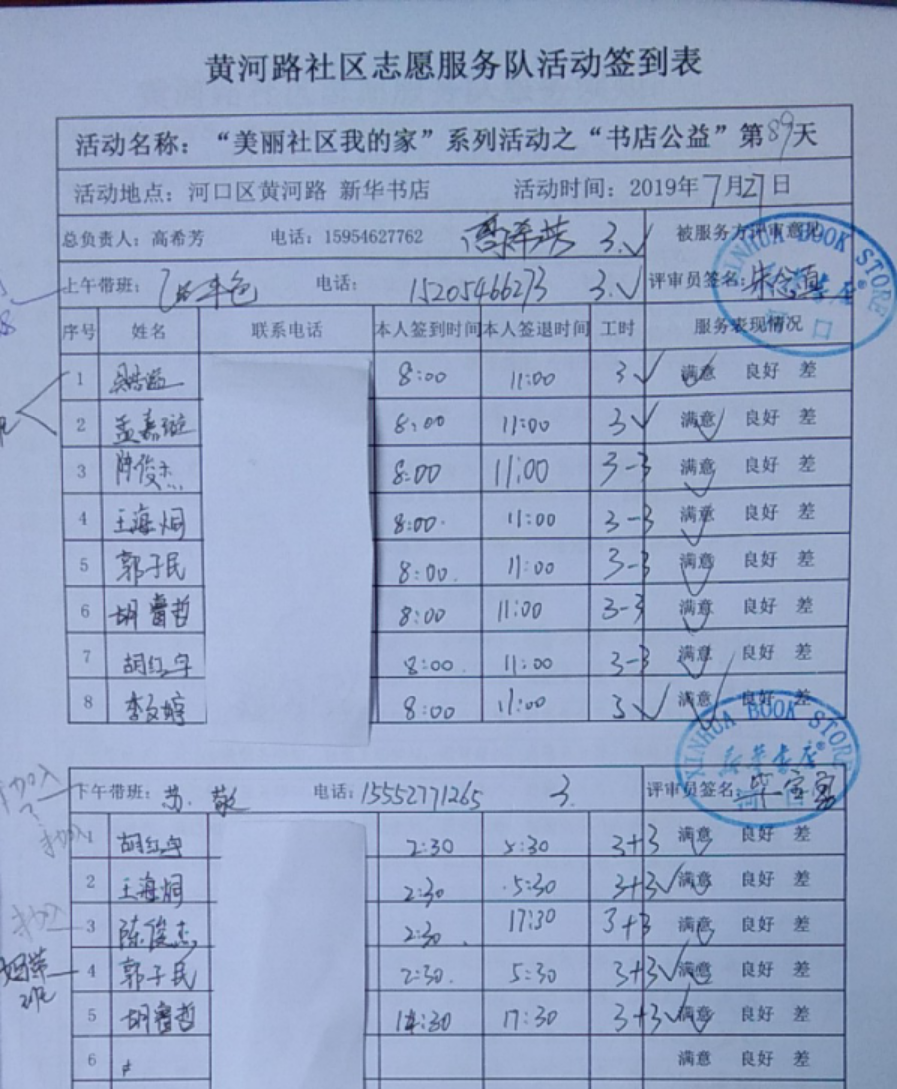 黄河路社区志愿服务队活动签到表
活动名称：“美丽社区我的家”系列活动之“书店公益”第89天
活动地点：河口区黄河路 新华书店 活动时间：2019年7月27日
总负责人：高希芳 电话：15954627762 高希芳 3.✓ 被服务方评审意见
上午带班： 电话：15205466273 3.✓ 评审员签名：
序号 姓名 联系电话 本人签到时间 本人签退时间 工时 服务表现情况
1 8:00 11:00 3✓ 满意 良好 差
2 孟嘉璇 8:00 11:00 3✓ 满意 良好 差
3 陈俊杰 8:00 11:00 3-3 满意 良好 差
4 王海烔 8:00 11:00 3-3 满意 良好 差
5 郭子民 8:00 11:00 3-3 满意 良好 差
6 胡睿哲 8:00 11:00 3-3 满意 良好 差
7 胡红宇 8:00 11:00 3-3 满意 良好 差
8 李文婷 8:00 11:00 3✓ 满意 良好 差
XINHUA BOOK STORE
新华书店
河口
下午带班：苏敬 电话：15552771265 3. 评审员签名：
1 胡红宇 2:30 5:30 3+3 满意 良好 差
2 王海烔 2:30 5:30 3+3✓ 满意 良好 差
3 陈俊杰 2:30 17:30 3+3 满意 良好 差
4 郭子民 2:30 5:30 3+3✓ 满意 良好 差
5 胡睿哲 14:30 17:30 3+3✓ 满意 良好 差
6 满意 良好 差
XINHUA BOOK STORE
新华书店
河口